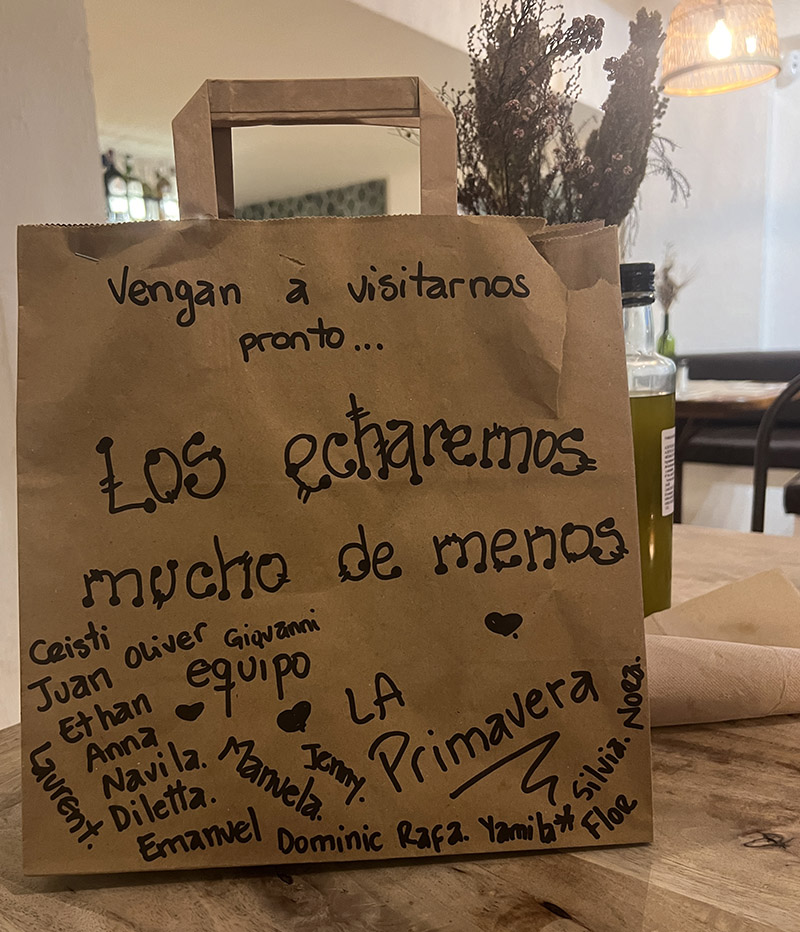 Vengan a visitarnos
pronto...
Los echaremos
mucho de menos
Cristi Oliver Giovanni
Juan equipo
Ethan LA
Anna Primavera
Navila. Manuela. Jenny.
Laurent. Diletta.
Emanuel Dominic Rafa. Yamila* Flor
Silvia. Nora.